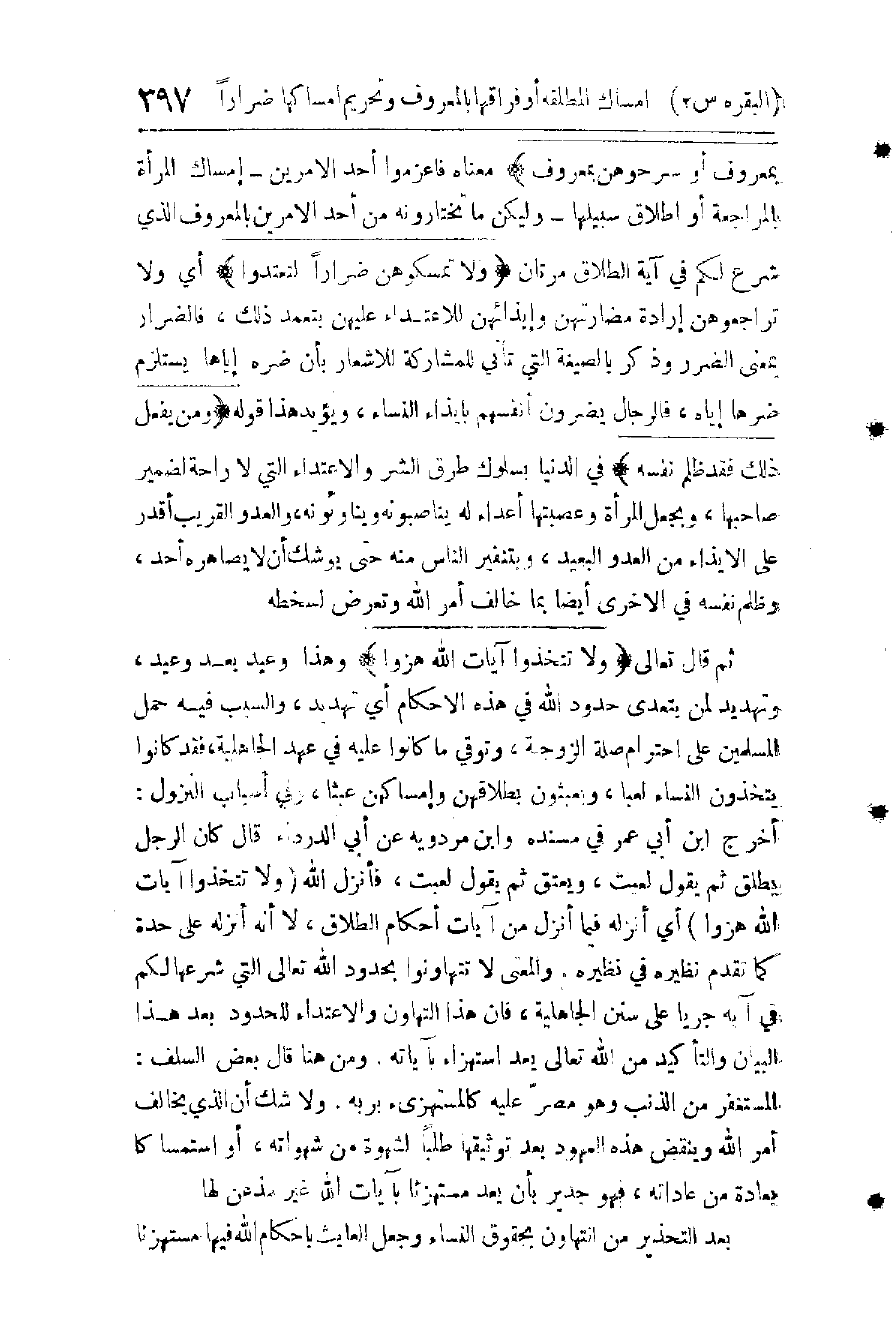 (البقرة س٢) امساك المطلقه أو فراقها بالمعروف وتحريم امساكها ضراراً ٣٩٧
بمعروف أو سرحوهن بمعروف ﴾ معناه فاعزموا أحد الامرين ــ إمساك المرأة
بالمراجعة أو اطلاق سبيلها ــ وليكن ما تختارونه من أحد الامرين بالمعروف الذي
شرع لكم في آية الطلاق مرتان ﴿ ولا تمسكوهن ضراراً لتعتدوا ﴾ أي ولا
تراجعوهن إرادة مضارتهن وإيذائهن للاعتـداء عليهن بتعمد ذلك ، فالضرار
بمعنى الضرر وذكر بالصيغة التي تأتي للمشاركة للاشعار بأن ضره إياها يستلزم
ضرها إياه ، فالرجال يضرون أنفسهم بايذاء النساء ، ويؤيد هذا قوله ﴿ ومن يفعل
ذلك فقد ظلم نفسه ﴾ في الدنيا بسلوك طرق الشر والاعتداء التي لا راحة لضمير
صاحبها ، وبجعل المرأة وعصبتها أعداء له يناصبونه ويناوئونه، والعدو القريب أقدر
على الايذاء من العدو البعيد ، وبتنفير الناس منه حتى يوشك أن لا يصاهره أحد ،
وظلم نفسه في الاخرى أيضا بما خالف أمر الله وتعرض لسخطه
ثم قال تعالى ﴿ ولا تتخذوا آيات الله هزوا ﴾ وهذا وعيد بعـد وعيد ،
وتهديد لمن يتعدى حدود الله في هذه الاحكام أي تهديد ، والسبب فيـه حمل
المسلمين على احترام صلة الزوجية ، وتوقي ما كانوا عليه في عهد الجاهلية، فقد كانوا
يتخذون النساء لعبا ، ويعبثون بطلاقهن وإمساكهن عبثا ، وفي أسباب النزول :
أخرج ابن أبي عمر في مسنده وابن مردويه عن أبي الدرداء قال كان الرجل
يطلق ثم يقول لعبت ، ويعتق ثم يقول لعبت ، فأنزل الله ( ولا تتخذوا آيات
الله هزوا ) أي أنزله فيما أنزل من آيات أحكام الطلاق ، لا أنه أنزله على حدة
كما تقدم نظيره في نظيره . والمعنى لا تتهاونوا بحدود الله تعالى التي شرعها لكم
في آيه جريا على سنن الجاهلية ، فان هذا التهاون والاعتداء للحدود بعد هـذا
البيان والتأكيد من الله تعالى يعد استهزاء بآياته . ومن هنا قال بعض السلف :
المستغفر من الذنب وهو مصرّ عليه كالمستهزىء بربه . ولا شك أن الذي يخالف
أمر الله وينقض هذه العهود بعد توثيقها طلباً لشهوة من شهواته ، أو استمساكا
بعادة من عاداته ، فهو جدير بأن يعد مستهزئا بآيات الله غير مذعن لها
بعد التحذير من التهاون بحقوق النساء وجعل العابث باحكام الله فيها مستهزئا